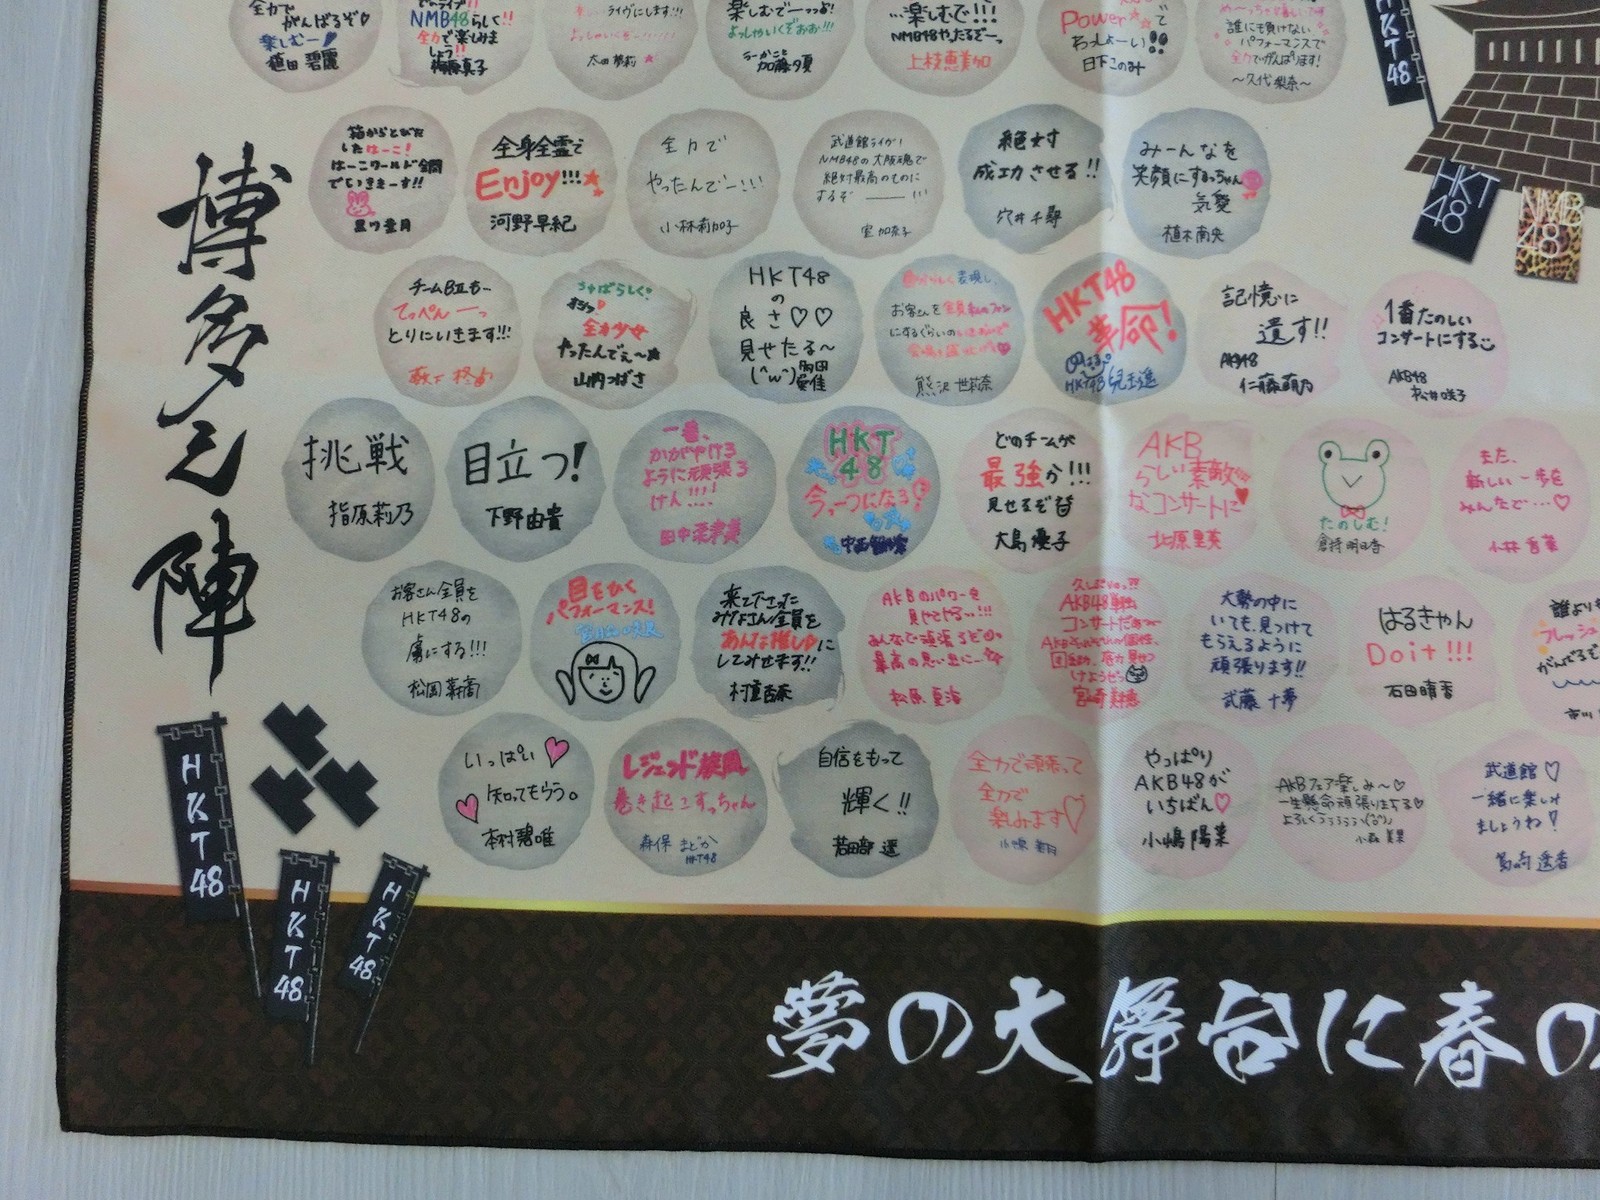 全力で
がんばるぞ♡
楽しむー!
植田 碧麗
NMB48らしく!!
全力で楽しみま
しょう!!
梅原真子
ライヴにします!!!
太田夢莉
楽しむでーっよ!
よっしゃいくぞぉぉ!!!
加藤夕夏
…楽しむで!!!
NMB48やったるぞーっ
上枝恵美加
Power
で
わっしょーい!!
日下このみ
誰にも負けない
パフォーマンスで
全力でがんばります!
〜久代梨奈〜
HKT
48
箱からとびだ
したはーこ!
はーこワールド全開
でいきまーす!!
黒川葉月
全身全霊で
Enjoy!!!
河野早紀
全力で
やったんでー!!!
小林莉加子
武道館ライヴ!
NMB48の大阪魂で
絶対最高のものに
するぞ――!!!
室加奈子
絶対
成功させる!!
穴井千尋
みーんなを
笑顔にするっちゃん
植木南央
HKT
48
NMB
48
チームBⅡも…
てっぺんーっ
とりにいきます!!!
薮下柊
全力少女
やったんでぇ〜
山内つばさ
HKT48
の
良さ♡♡
見せたる〜
(^w^)多田愛佳
熊沢世莉奈
HKT48
革命!
HKT48 兒玉遥
記憶に
遺す!!
AKB48
仁藤萌乃
1番たのしい
コンサートにする
AKB48
松井咲子
博多之陣
挑戦
指原莉乃
目立つ!
下野由貴
一番、
かがやける
ように頑張る
けん!!!!
田中菜津美
HKT
48
今、一つになる!
中西智代梨
どのチームが
最強か!!!
見せるぞ皆
大島優子
AKB
らしい素敵
なコンサートに♥
北原里英
たのしむ!
倉持明日香
また、
新しい一歩を
みんなで…♡
小林香菜
お客さん全員を
HKT48の
虜にする!!!
松岡菜摘
目をひく
パフォーマンス!
宮脇咲良
来て下さった
みなさん全員を
あんな推しに
してみせます!!
村重杏奈
AKBのパワーを
見せてやるっ…!!!
みんなで頑張るぞ
最高の思い出に…☆
松原夏海
久しぶりっ!!
AKB48単独
コンサートだぁ〜
宮崎美穂
大勢の中に
いても、見つけて
もらえるように
頑張ります!!
武藤十夢
はるきゃん
Doit!!!
石田晴香
誰より
フレッシュ
がんばるぞ
市川
HKT48
いっぱい♡
♡知ってもらう。
本村碧唯
レジェンド旋風
巻き起こすっちゃん
森保まどか
HKT48
自信をもって
輝く!!
若田部遥
全力で頑張って
全力で
楽しみます♡
小笠原
やっぱり
AKB48が
いちばん♡
小嶋陽菜
AKBフェア楽しみ〜♡
一生懸命頑張りまする♡
小森美果
武道館♡
一緒に楽しみ
ましょうね!
島崎遥香
HKT48
HKT48
夢の大舞台に春の